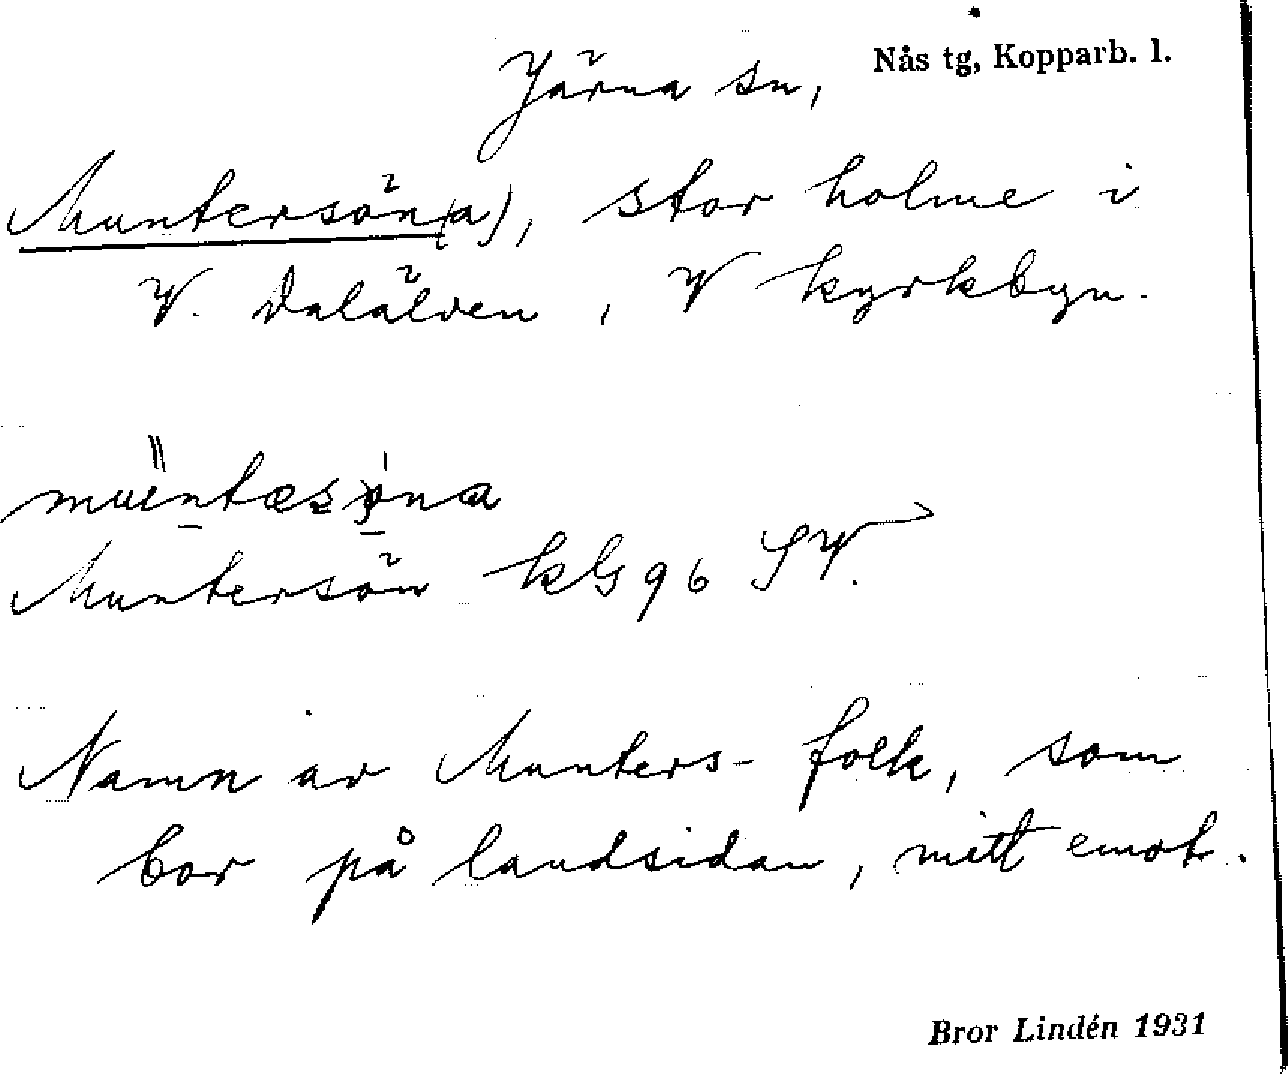 Järna sn, Nås tg, Kopparb. l.
Muntersön(a), stor holme i
V. Dalälven, V kyrkbyn.
Muntersön kG 96 SV.
Namn av Munters-folk, som
bor på landsidan, mitt emot.
Bror Lindén 1931